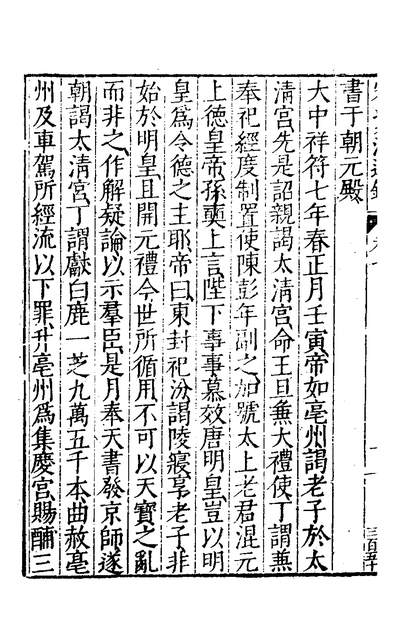 書于朝元殿
大中祥符七年春正月壬寅帝如亳州謁老子於太
清宮先是詔親謁太清宮命王旦兼大禮使丁謂兼
奉祀經度制置使陳彭年副之加號太上老君混元
上德皇帝孫奭上言陛下事事慕效唐明皇豈以明
皇爲令德之主耶帝曰東封祀汾謁陵寢享老子非
始於明皇且開元禮今世所循用不可以天寶之亂
而非之作解疑論以示羣臣是月奉天書發京師遂
朝謁太清宮丁謂獻白鹿一芝九萬五千本曲赦亳
州及車駕所經流以下罪升亳州爲集慶宮賜酺三